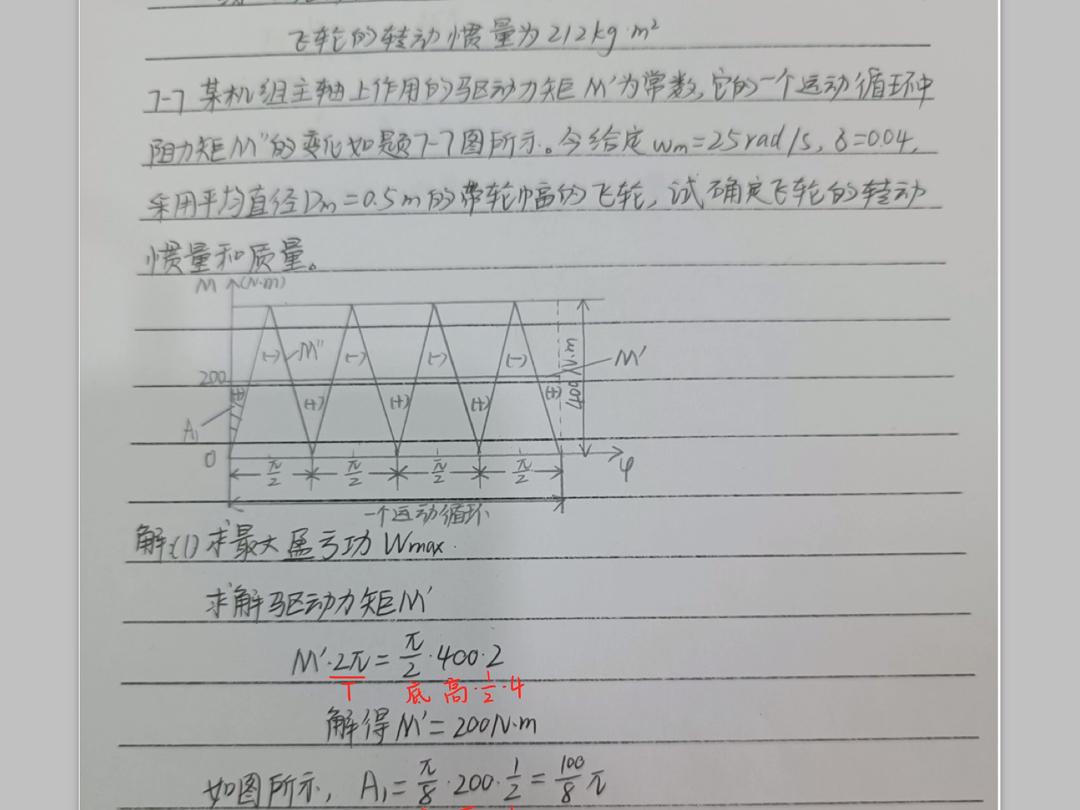 飞轮的转动惯量为212kg·m²
7-7 某机组主轴上作用的驱动力矩M′为常数,它的一个运动循环中
阻力矩M″的变化如题7-7图所示。今给定wm=25rad/s,δ=0.04,
采用平均直径Dm=0.5m的带轮幅的飞轮,试确定飞轮的转动
惯量和质量。
M (N·m)
(-) M″ (-) (-) (-) M′
200
400N·m
(+) (+) (+) (+) (+)
A₁
0 φ
π/2 π/2 π/2 π/2
一个运动循环
解:(1)求最大盈亏功Wmax.
求解驱动力矩M′
M′·2π=π/2·400·2
T 底 高·1/2·4
解得M′=200N·m
如图所示, A₁=π/8·200·1/2=100/8π